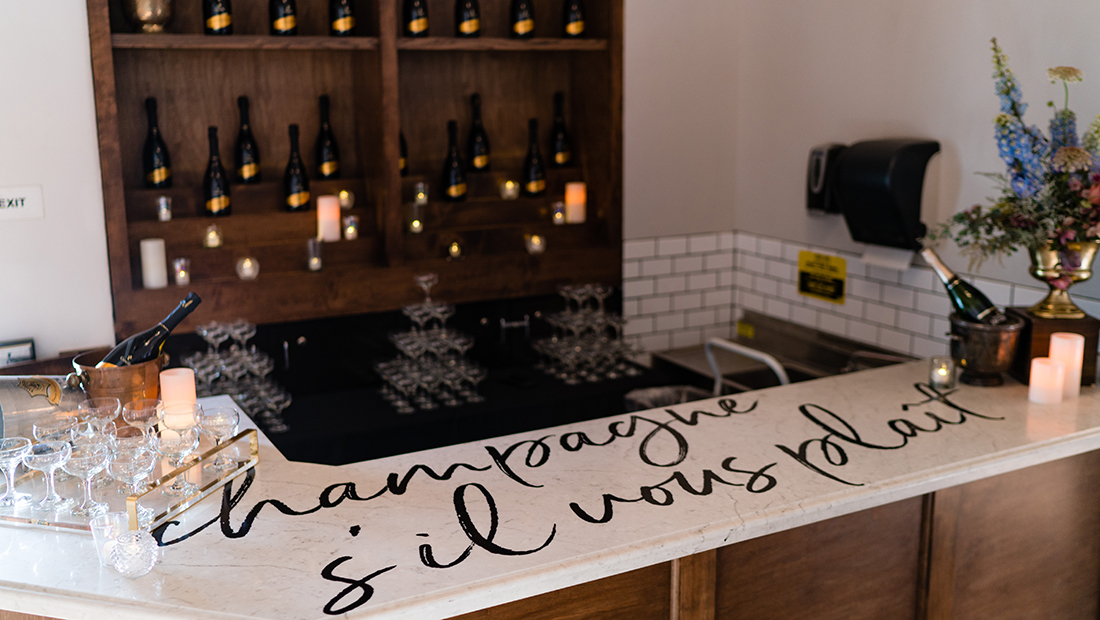 EXIT
champagne
s'il vous plaît